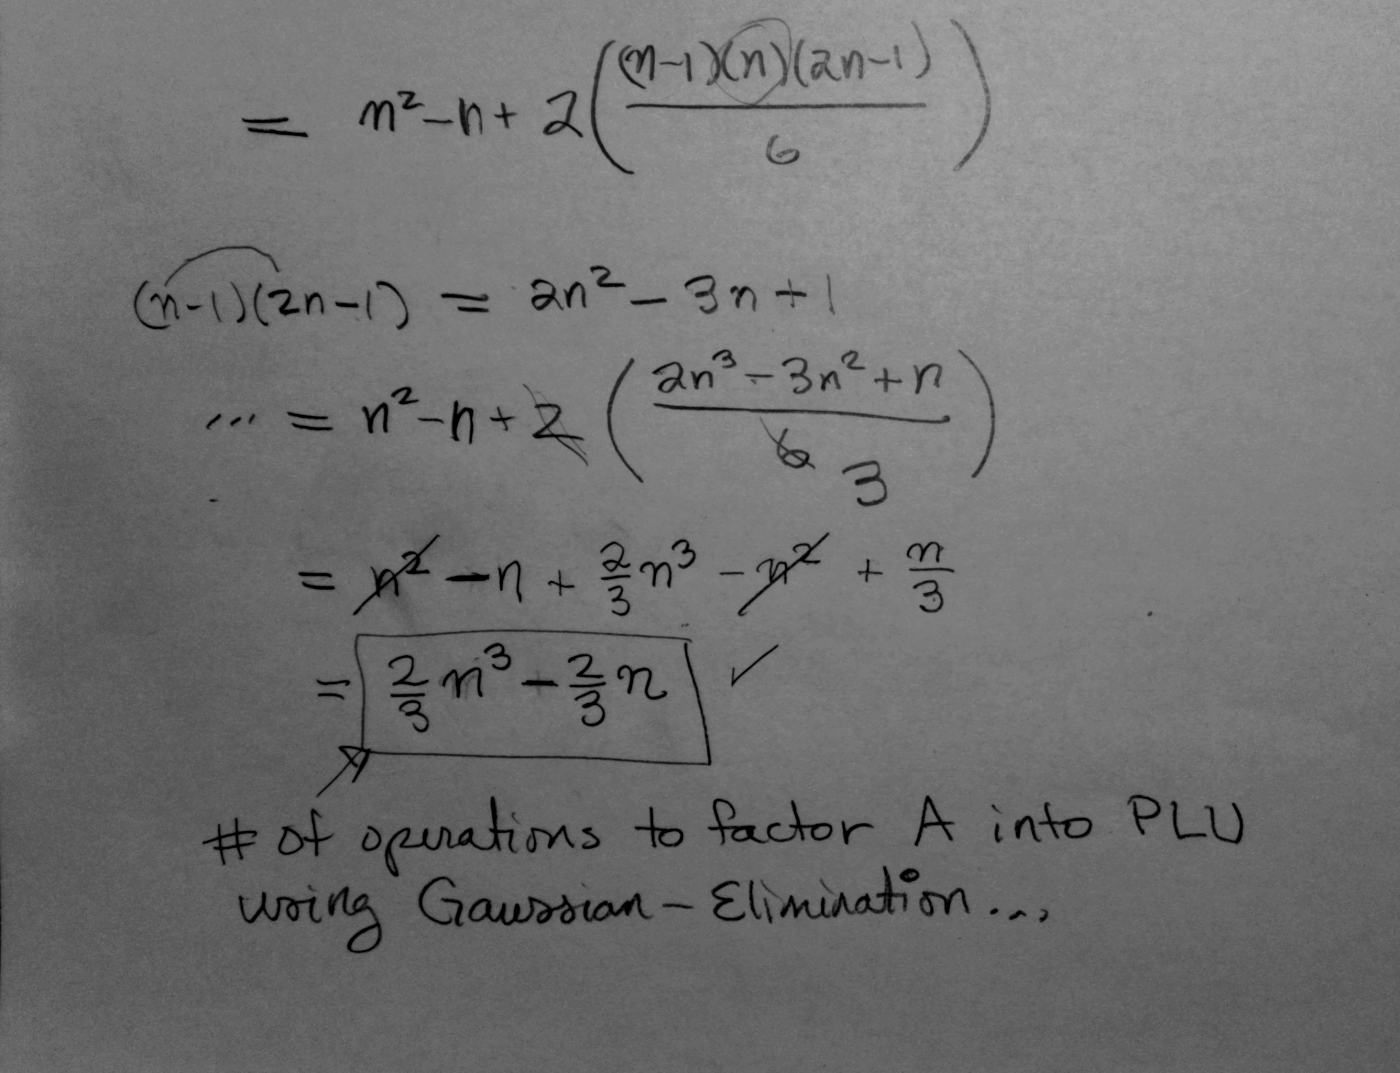 = n² - n + 2( (n-1)(n)(2n-1) / 6 )
(n-1)(2n-1) = 2n² - 3n + 1
... = n² - n + 2 ( (2n³ - 3n² + n) / 6 3 )
= n² - n + 2/3 n³ - n² + n/3
= 2/3 n³ - 2/3 n ✓
# of operations to factor A into PLU
using Gaussian-Elimination...